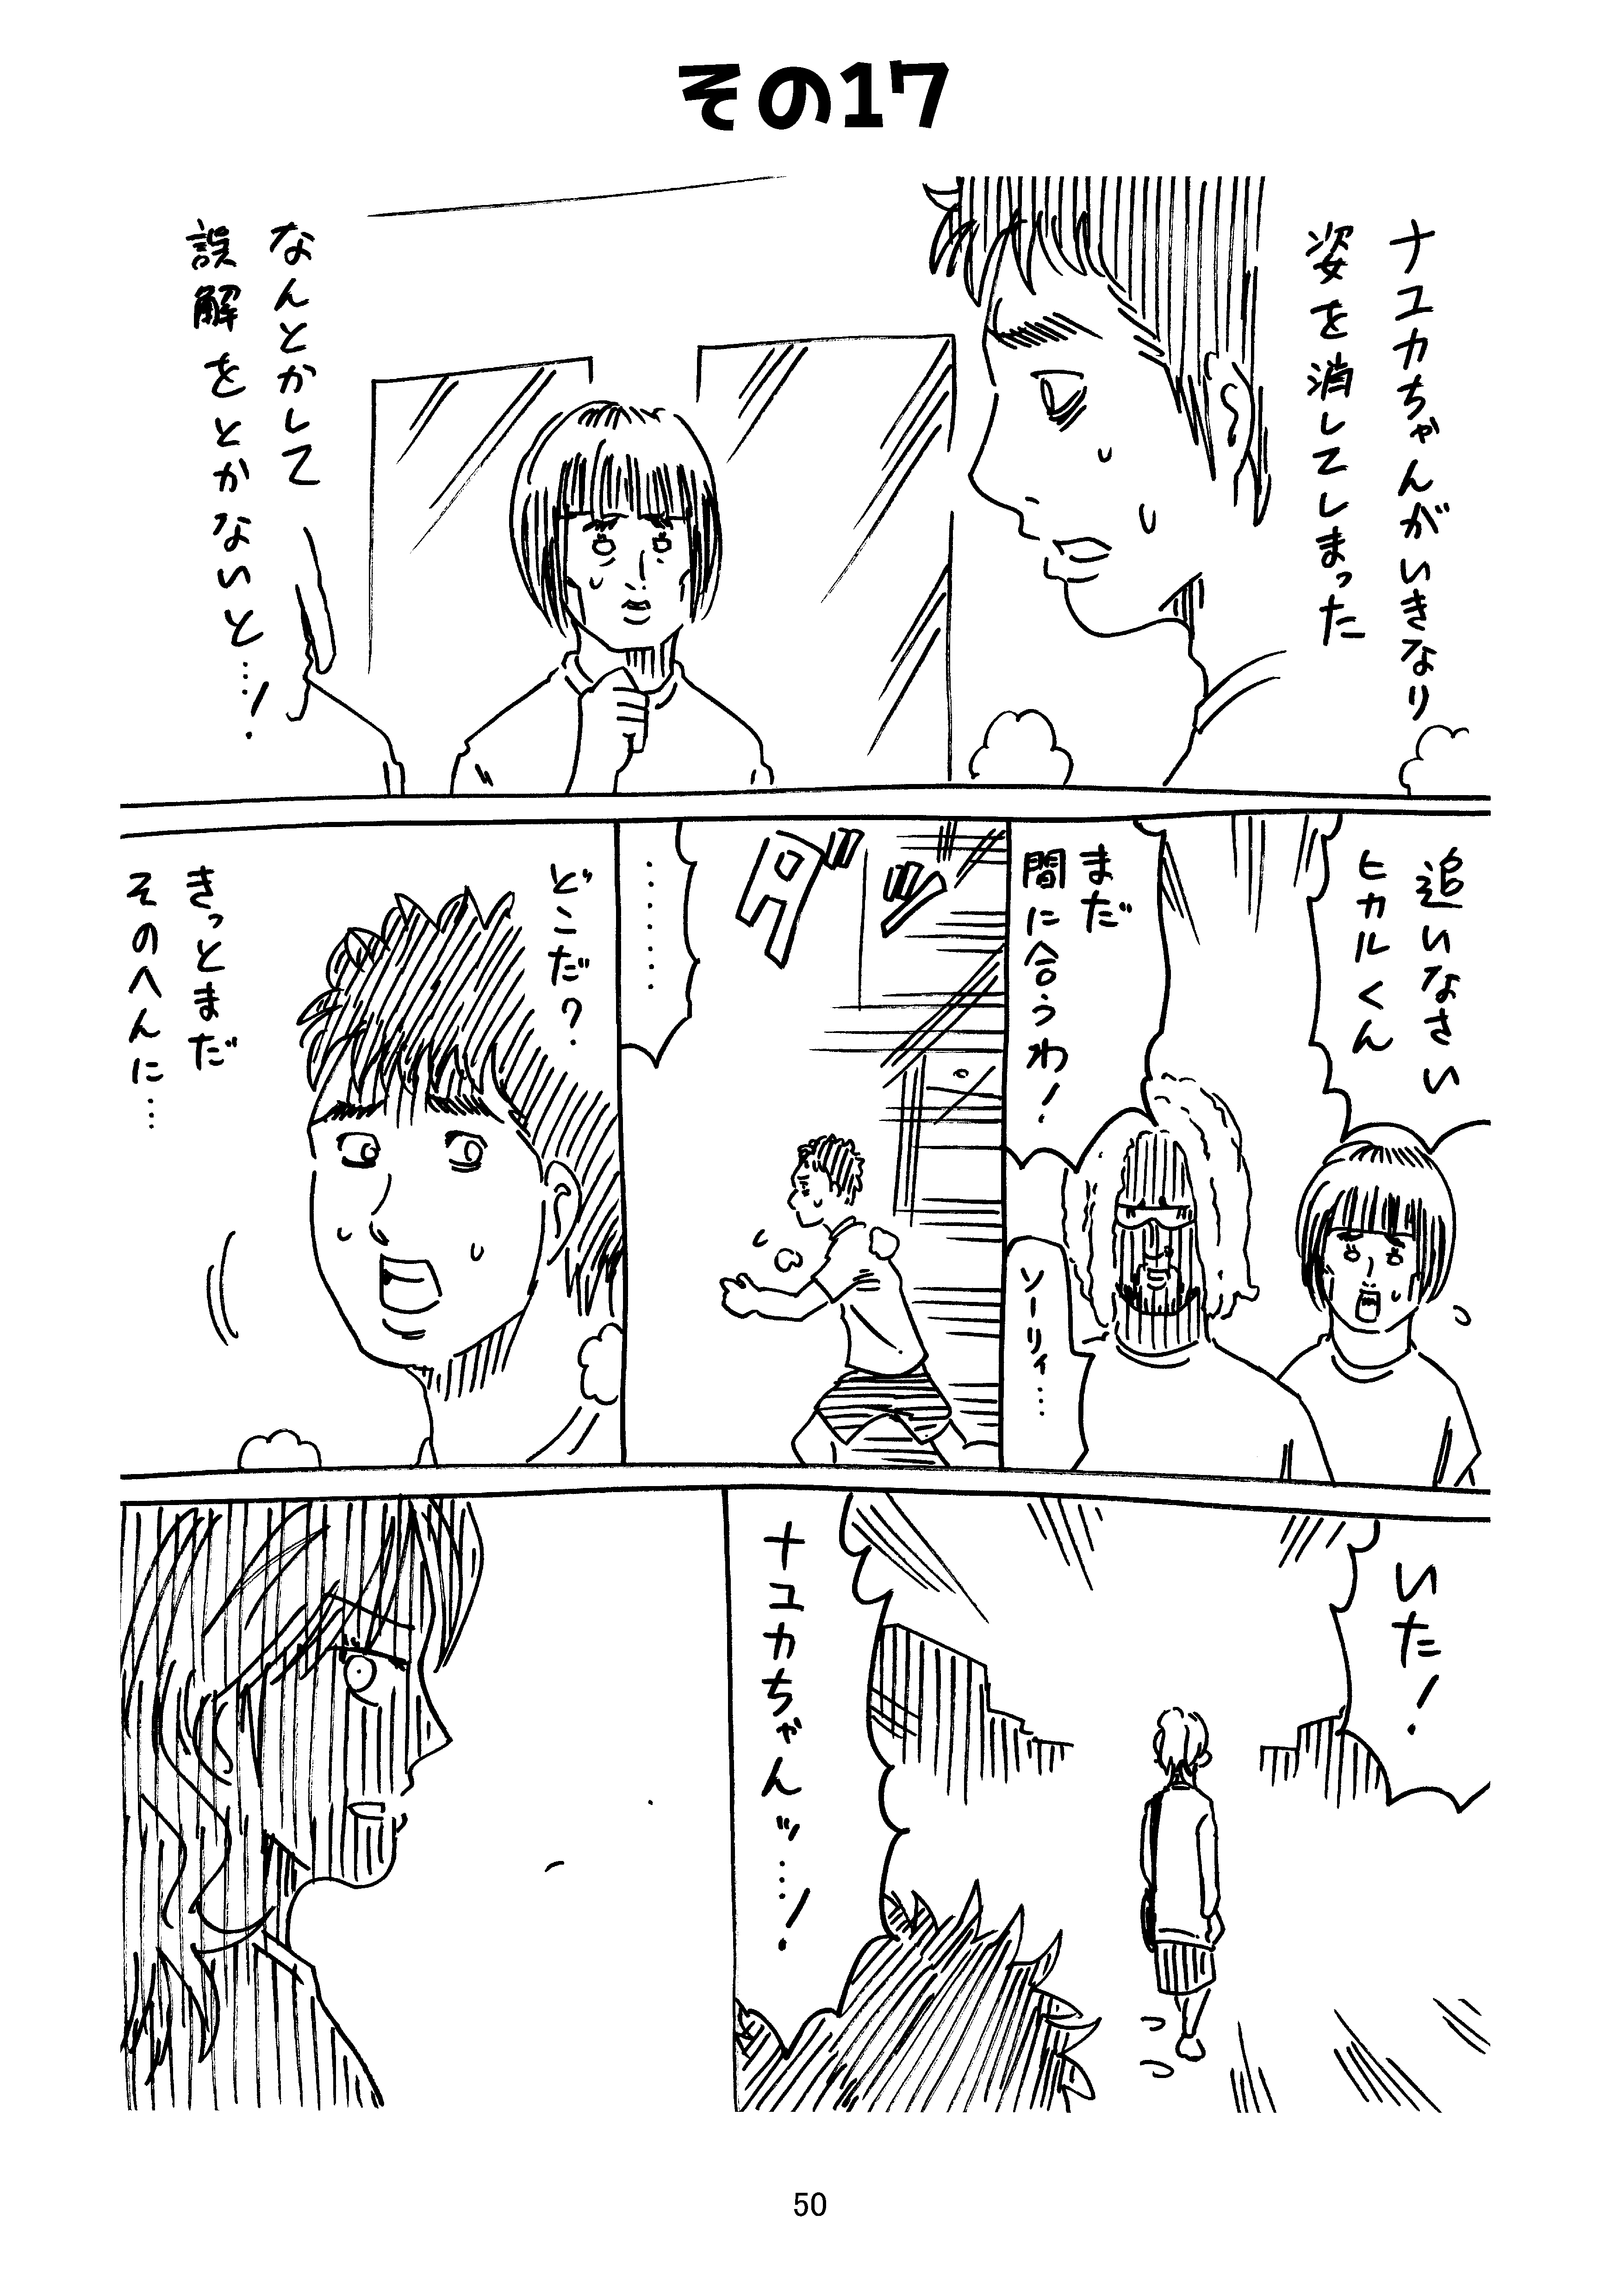 その17
ナユカちゃんがいきなり
姿を消してしまった
なんとかして
誤解をとかないと…！
追いなさい
ヒカルくん
まだ
間に合うわ！
ソーリィ…
ダッ
……
どこだ？
きっとまだ
そのへんに…
いた！
ナユカちゃんッ…！
50